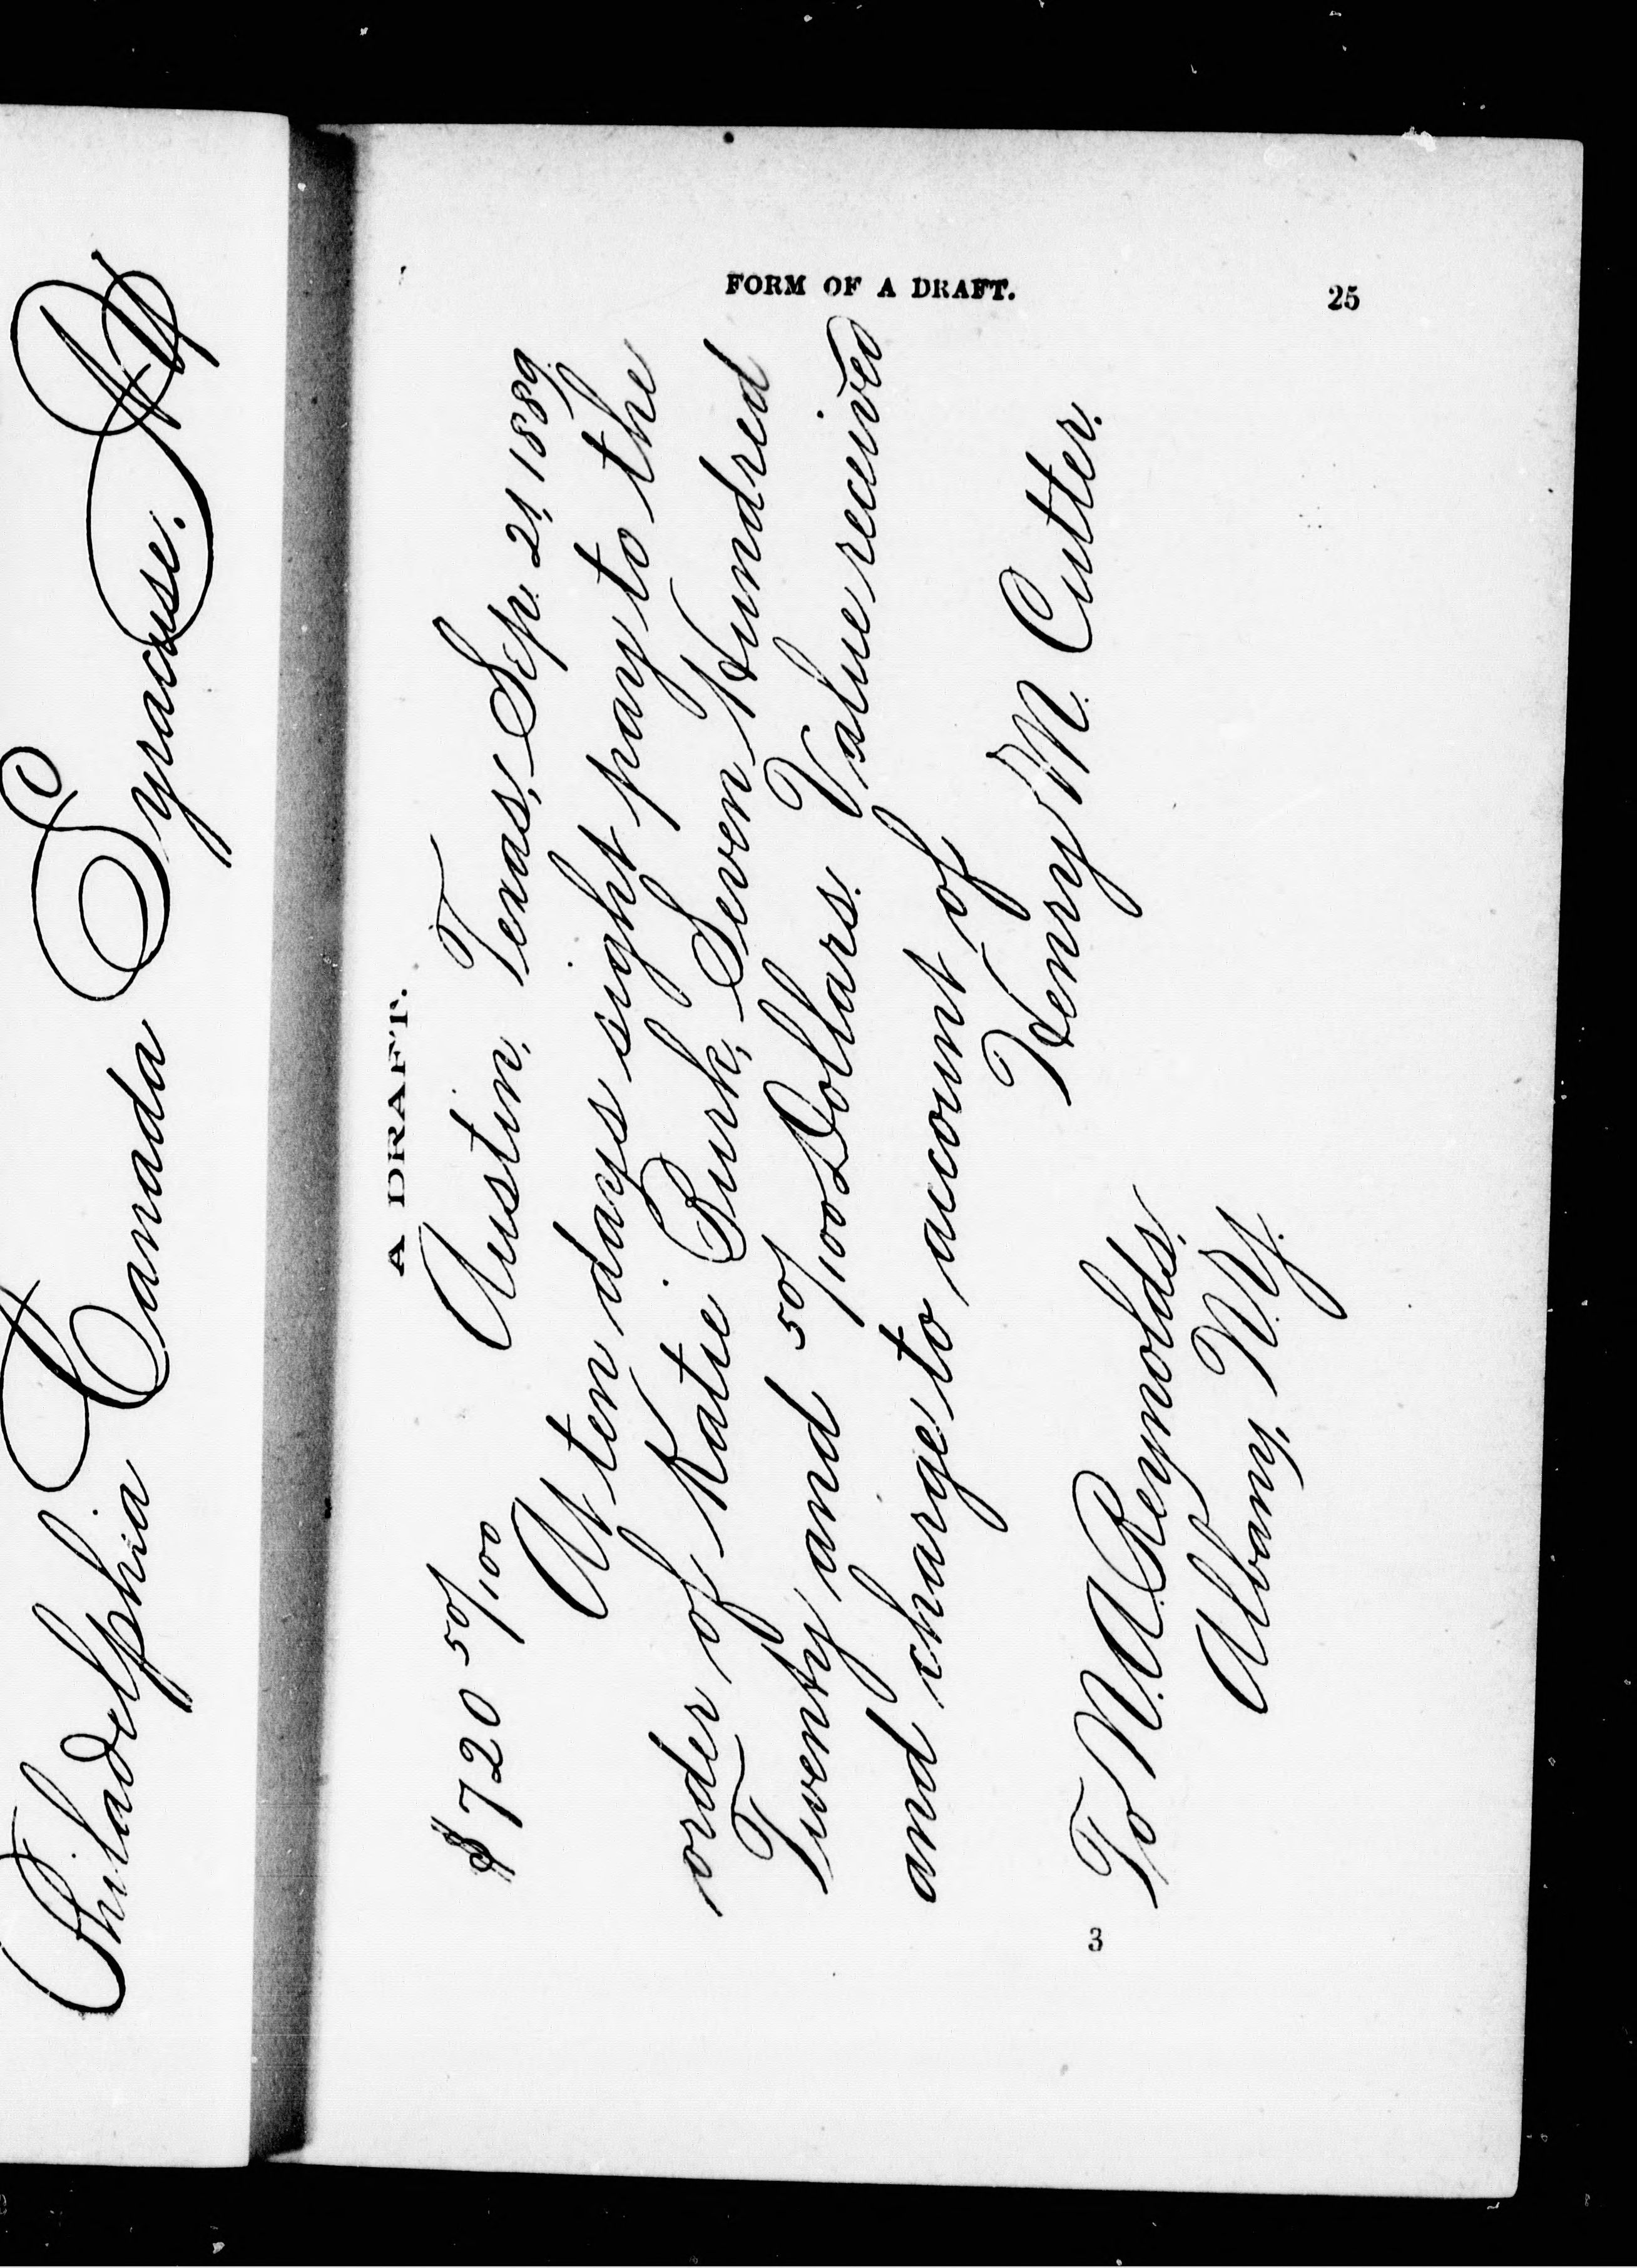 Philadelphia Canada Syracuse. NY
FORM OF A DRAFT. 25
A DRAFT.
$720 50/100 Austin, Texas, Sep. 21, 1889.
At ten days sight pay to the
order of Katie Burk, Seven Hundred
Twenty and 50/100 Dollars. Value received
and charge to account of
Henry M. Cutter.
To N. A. Reynolds.
Albany, N. Y.
3